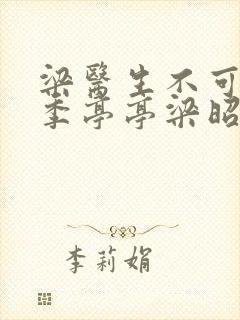 梁醫生不可
季亭亭梁昭
李莉娟